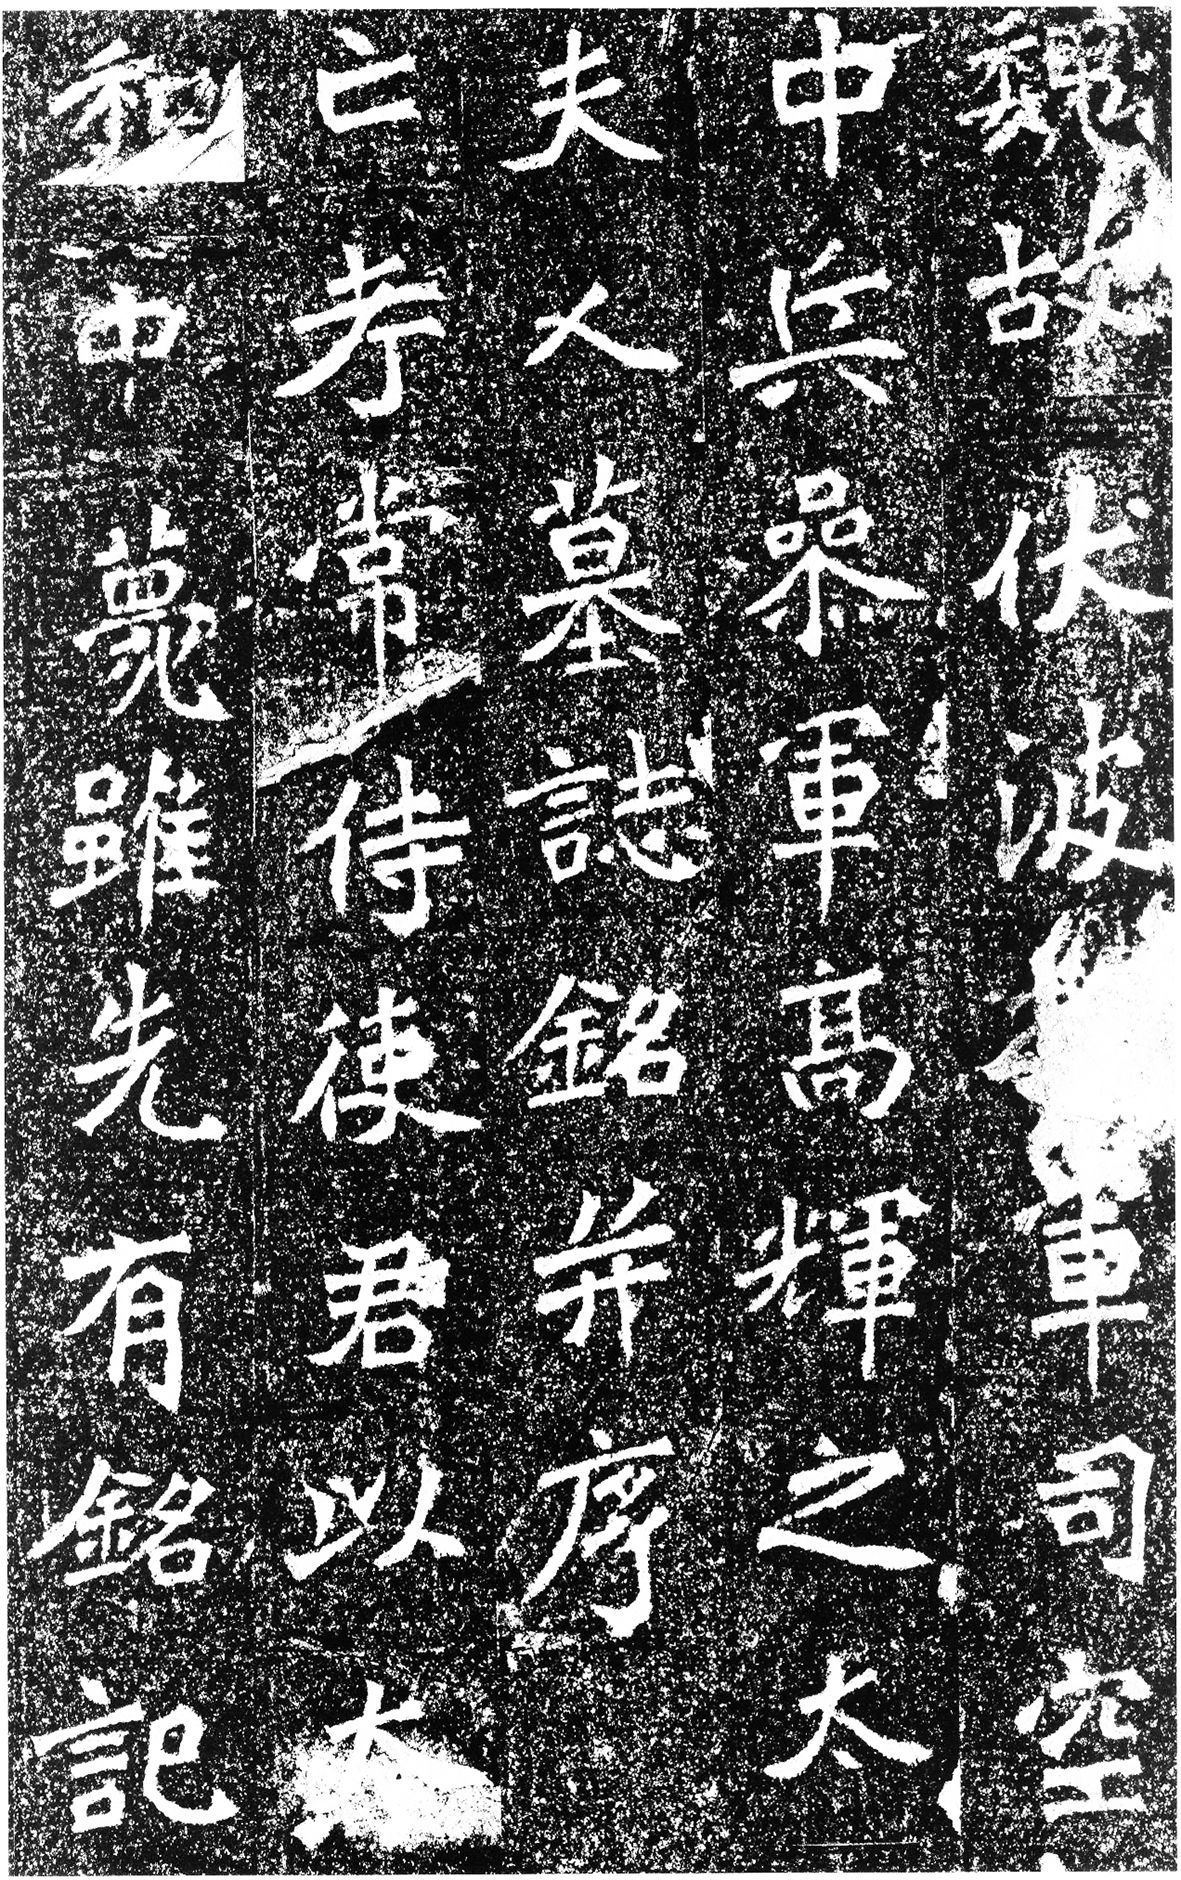 魏故伏波軍司空
中兵叅軍髙輝之太
夫人墓誌銘并序
亡考常侍使君以太
和中薨雖先有銘記